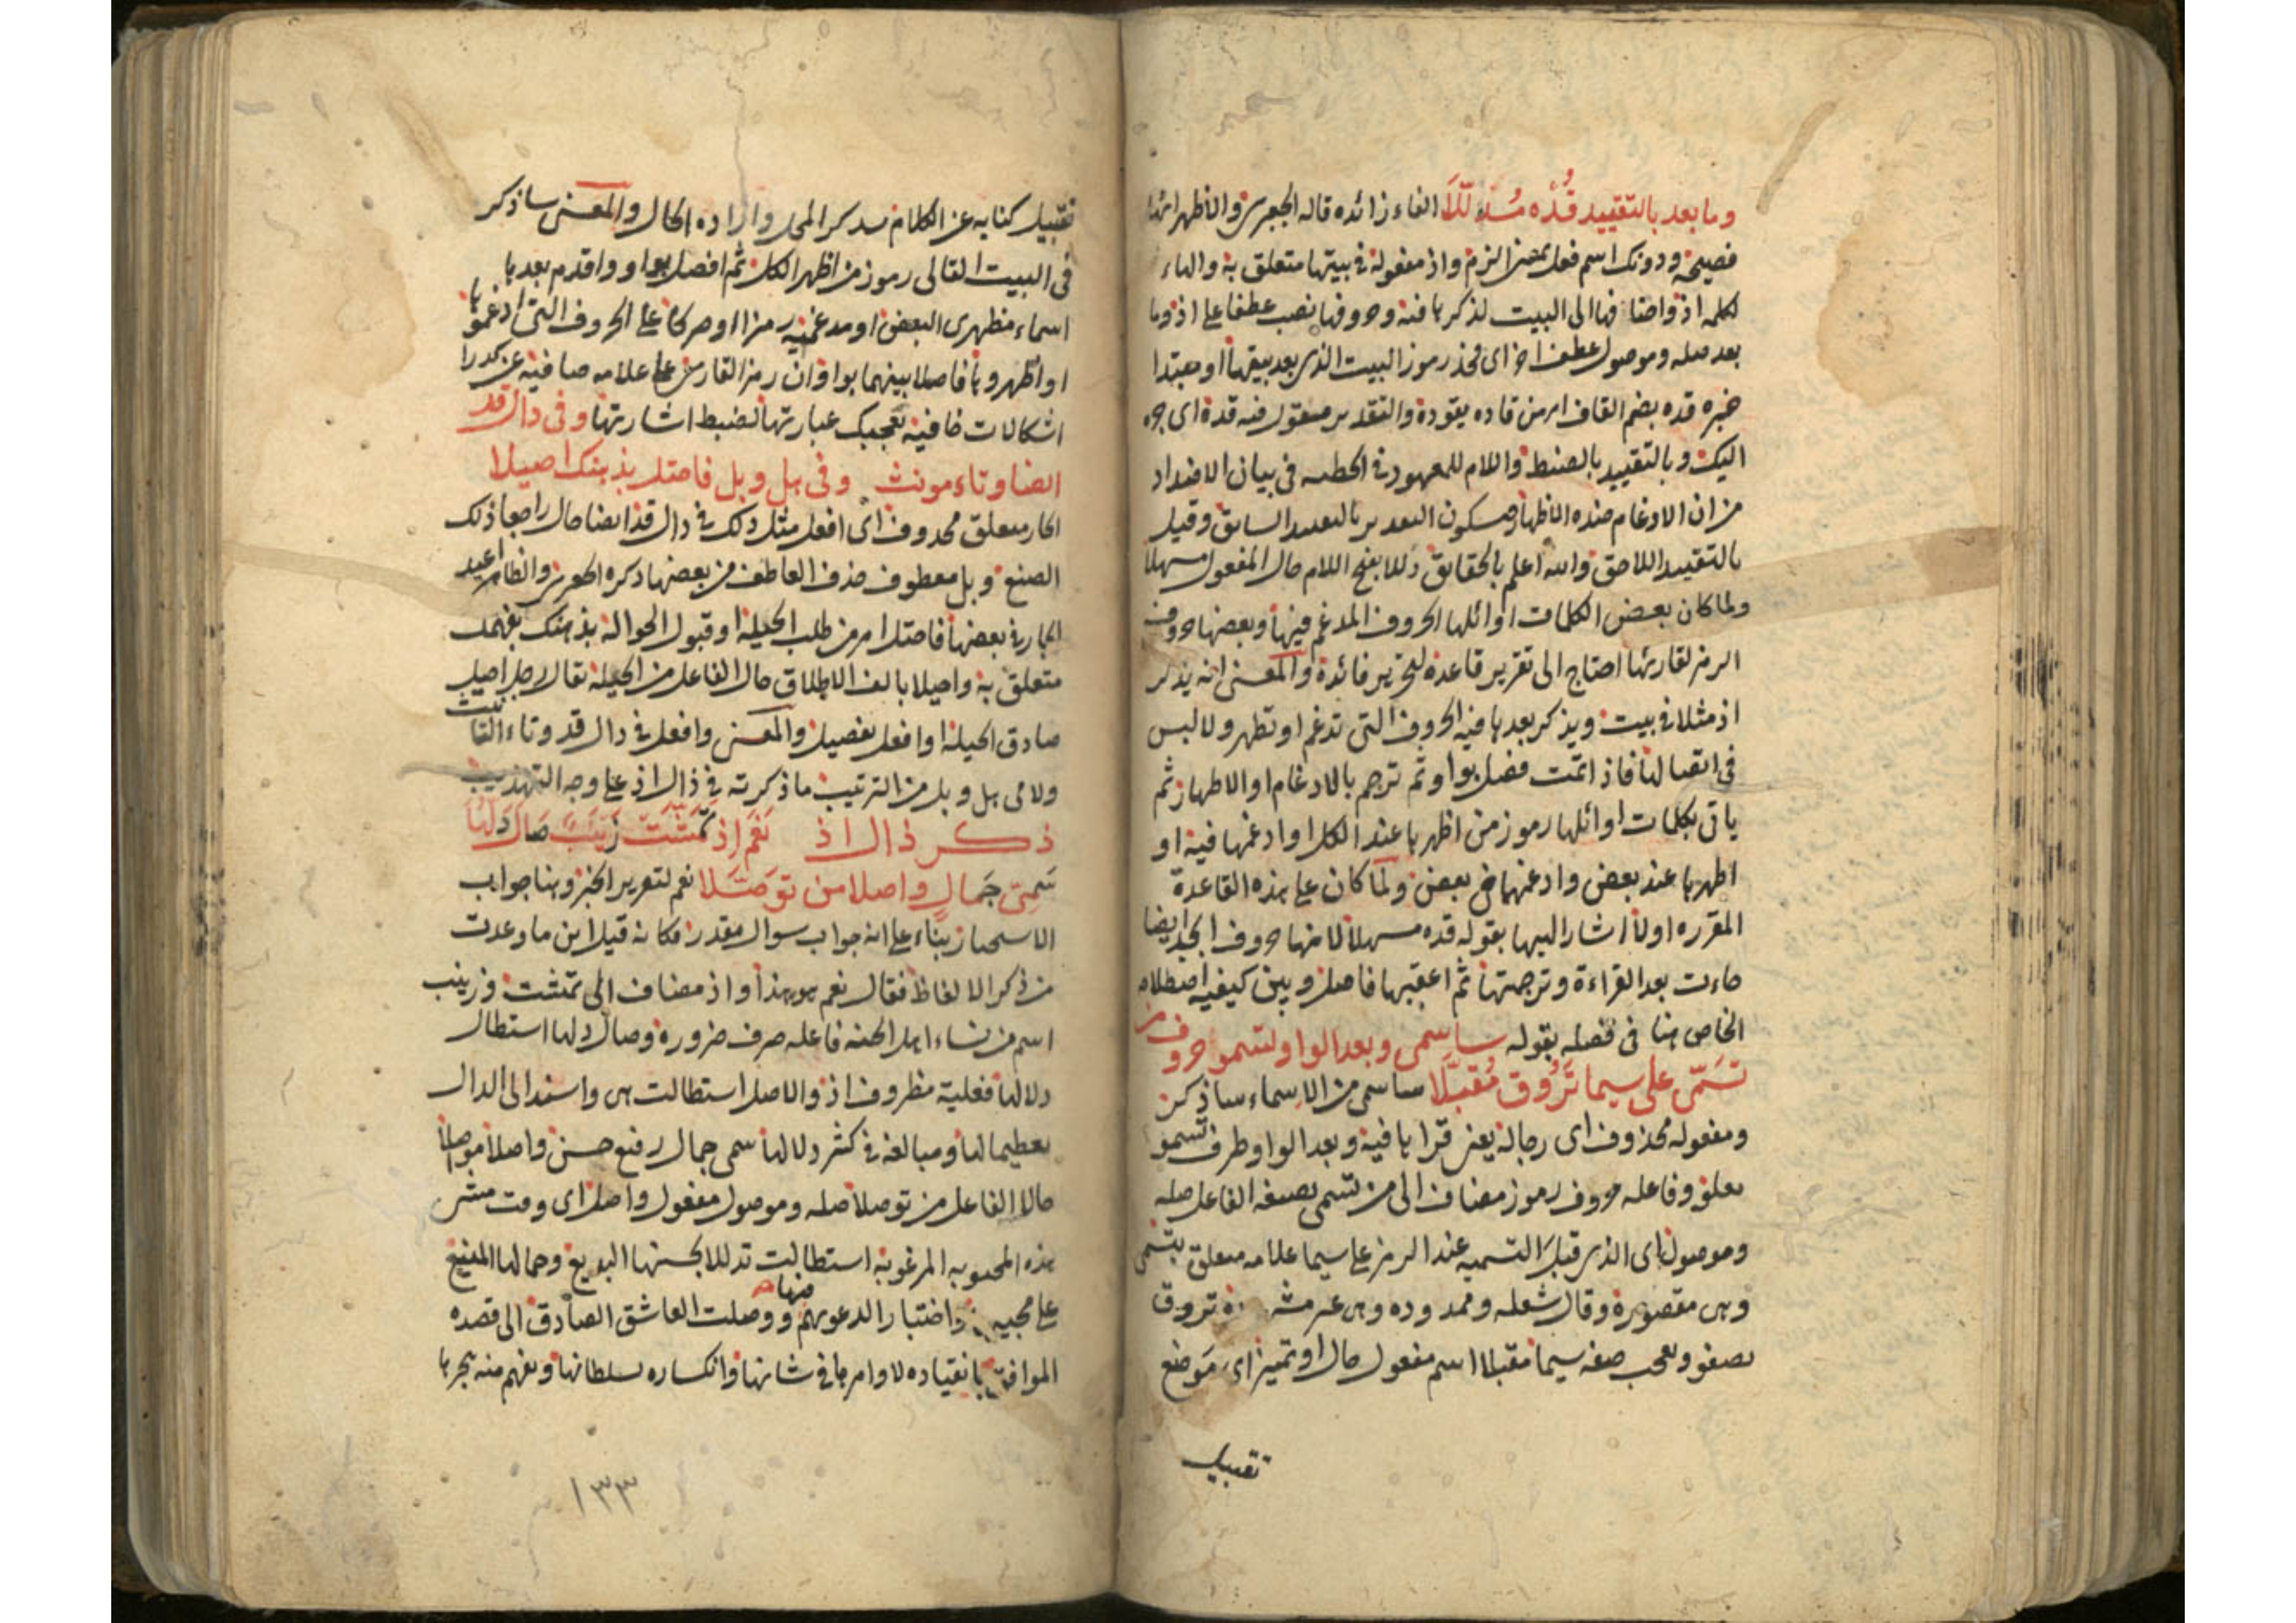 وما بعد بالتقييد قده مذللا الفاء زائده قاله الجعبرى والاظهر انها
فصيحة ودونك اسم فعل بمعنى الزم واذ مفعوله فى بيتها متعلق به والهاء
لكلمه اذ واضافها الى البيت لذكرها فيه وحروفها نصب عطفا على اذ وما
بعد صله وموصول عطف اخر اى فخذ رموز البيت الذى بعد بيتها او مبتدا
خبره قده بضم القاف امر من قاده يقوده والتقدير مقول فيه قده اى جره
اليك وبالتقييد بالضبط واللام للمعهود فى الخطبه فى بيان الاضداد
من ان الادغام ضده الاظهار وسكون بالتقييد السابق وقيل
بالتقييد اللاحق والله اعلم بالحقايق ذللا بفتح اللام حال المفعول مسهلا
ولما كان بعض الكلمات اوائلها الحروف المدغم فيها وبعضها حروف
الرمز لقارئها احتاج الى تقرير قاعدة لتحرير فائدة والمعنى انه يذكر
اذ مثلا فى بيت ويذكر بعدها فيه الحروف التى تدغم او تظهر ولا لبس
فى اتصالها فاذا تمت فصل بواو ثم ترجم بالادغام او الاظهار ثم
ياتى بكلمات اوائلها رموز من اظهرها عند الكل او ادغمها فيه او
اظهرها عند بعض وادغمها فى بعض ولما كان على هذه القاعدة
المقرره اولا اشار اليها بقوله قده مسهلا لانها حروف ابجد ايضا
جاءت بعد القراءة وترجمتها ثم اعقبها فاصل وبين كيفيه اصطلاحه
الخاص هنا فى فصله بقوله ساسمى وبعد الواو تسمو حروف من
تسمى على سيما تروق مقبلا ساسمى من الاسماء ساذكر
ومفعوله محذوف اى رجاله يعنى قراها فيه وبعد الواو ظرف تسمو
وفاعله حروف رموز مضاف الى من تسمى بصيغه الفاعل صله
وموصول اى الذى قبل التسميه عند الرمز على سيما علامه متعلق بتسمى
وهى مقصورة وقال شعله وممدوده وهى تروق
تصفو وتعجب صفه سيما مقبلا اسم مفعول حال او تمييز اى موضع
تقبيل
تقبيل كنايه عن الكلام بذكر المحل واراده الحال والمعنى ساذكر
فى البيت التالى رموز من اظهر الكل ثم افصل بواو واقدم بعدها
اسماء مظهرى البعض او مدغميه رمزا او صركا على الحروف التى ادغموها
او اظهروها فاصلا بينهما بواو وان رمز القارئ على علامه صافيه عن كدر
اشكالات خافيه تعجبك عبارتها لضبط اشارتها وفى دال قد
ايضا وتاء مونث وفى هل وبل فاحتل بذهنك احيلا
الجار متعلق محذوف اى افعل مثل ذلك فى دال قد ايضا حال راجعا ذلك
الصنع وبل معطوف حذف العاطف من بعضها ذكره الجعبرى والظاهر اعيد
الجار فى بعضها فاحتل امر من طلب الحيله او قبول الحواله بذهنك بفهمك
متعلق به واحيلا بالف الاطلاق حال الفاعل من الحيلة يقال رجل احيل
صادق الحيله او افعل تفضيل والمعنى وافعل فى دال قد وتاء التانيث
ولامى هل وبل من الترتيب ما ذكرته فى ذال اذ على وجه التهذيب
ذكر ذال اذ نعم اذ تمشت زينب صال دلها
سمى جمال واصلا من توصلا نعم لتقرير الخبر وهنا جواب
الاستخبار بناء على انه جواب سوال مقدر فكانه قيل اين ما وعدت
من ذكر الالفاظ فقال نعم هو هذا واذ مضاف الى تمشت وزينب
اسم من نساء اهل الجنه فاعله صرف ضروره وصال دلها استطال
دلالها فعلية مظروف اذ والاصل استطالت هى واسند الى الدال
تعظيما لها ومبالغه فى كثر دلالها سمى جمال رفيع حسن واصلا موصلا
حال الفاعل من توصلا صله وموصول مفعول واصل اى وقت مشى
هذه المحبوبه المرغوبه استطالت تدللا بحسنها البديع وجمالها المنيع
على محبيها واختبارا لدعوىهم منها ووصلت العاشق الصادق الى قصده
الموافق بانقياده لاوامرها فى شانها وانكساره لسلطانها وبفهم منه هجرها
١٣٣